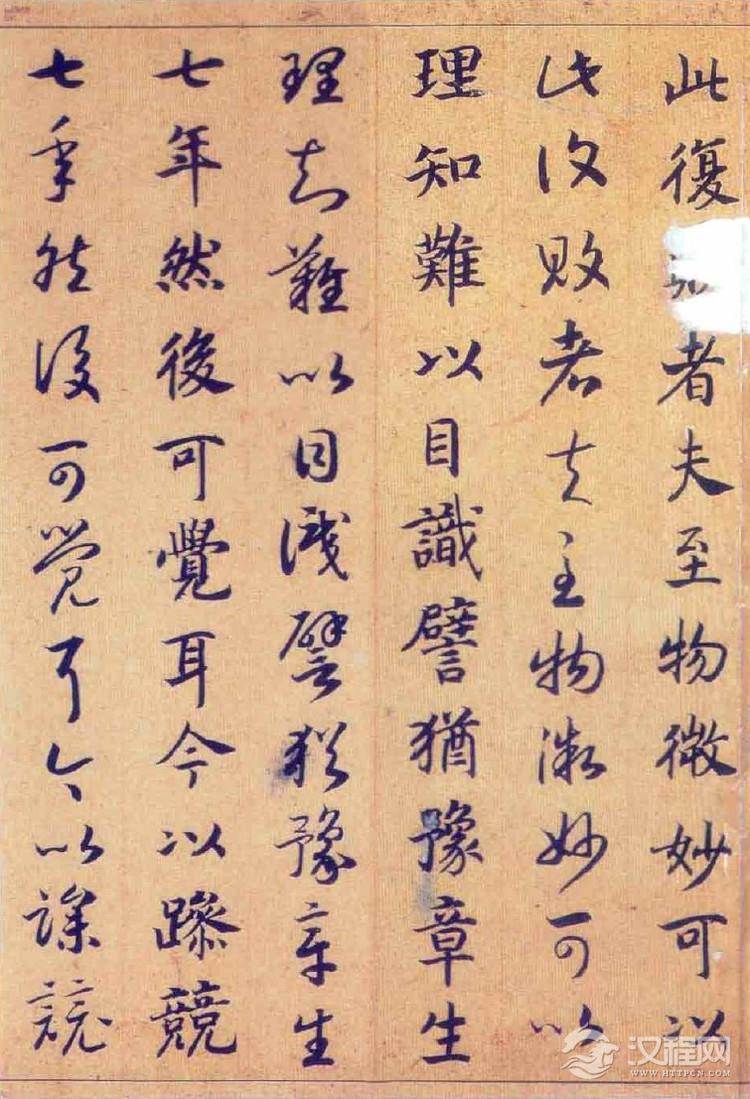 此復者夫至物微妙可以
此復敗者夫至物微妙可以
理知難以目識譬猶豫章生
理知難以目識譬猶豫章生
七年然後可覺耳今以躁競
七年然後可覺耳今以躁競
汉程网
WWW.HTTPCN.COM